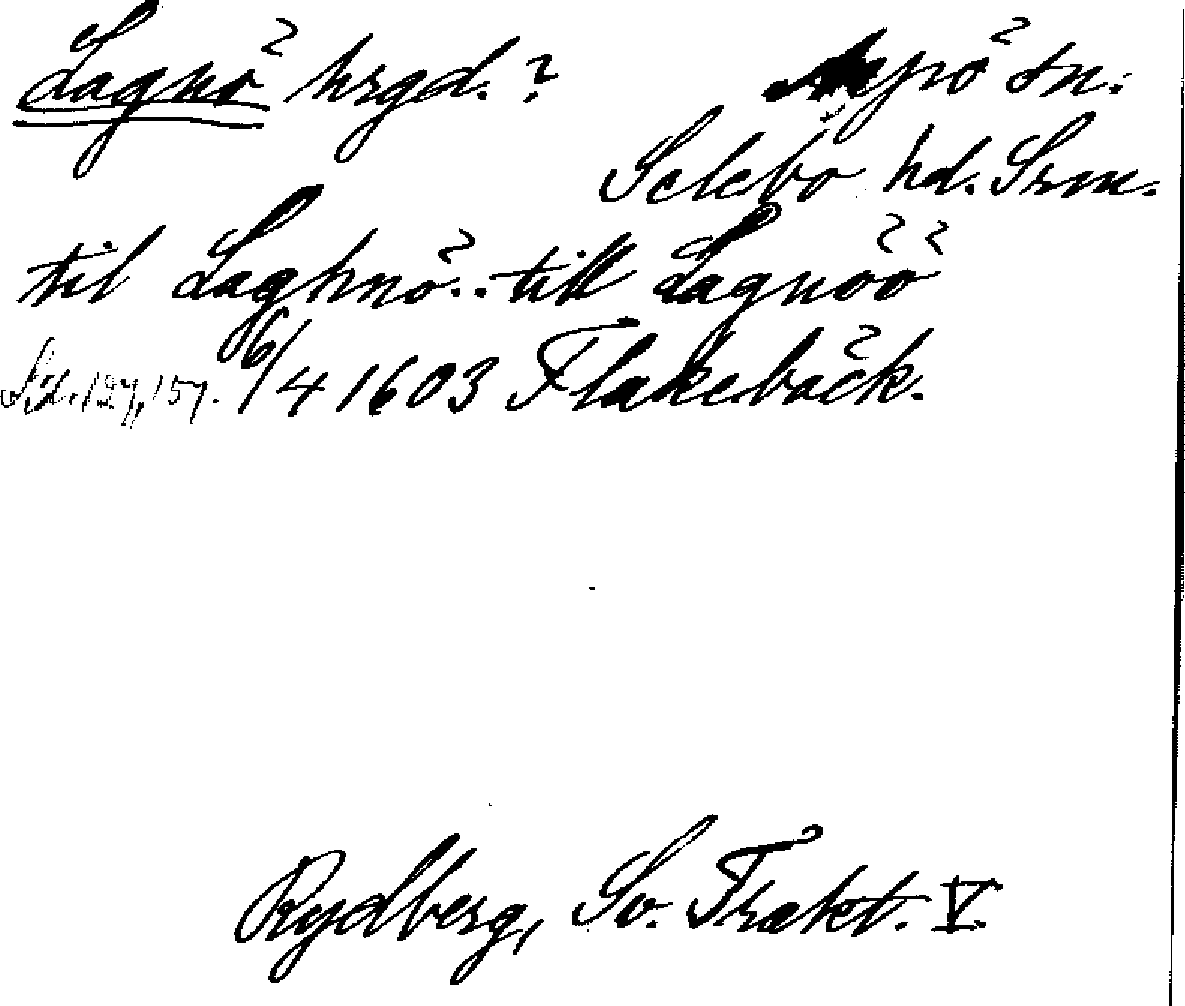 Lagnö hrgd.? Aspö sn.
Selebo hd. Srm.
til Laghnö.. till Lagnöö
Sid. 127, 157. 6/4 1603 Flakebäck.
Rydberg, Sv. Trakt. V.